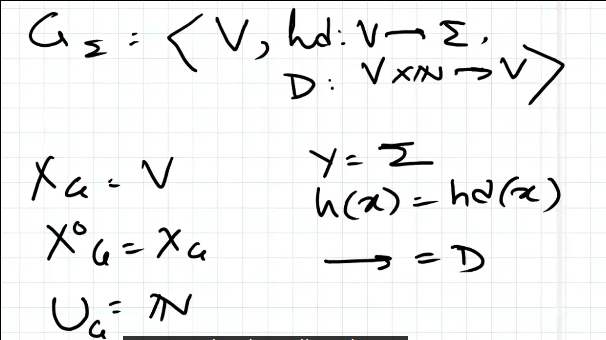 G_Σ = < V, hd: V → Σ,
D: V × ℕ → V >
X_G = V
X⁰_G = X_G
U_G = ℕ
Y = Σ
h(x) = hd(x)
⟶ = D